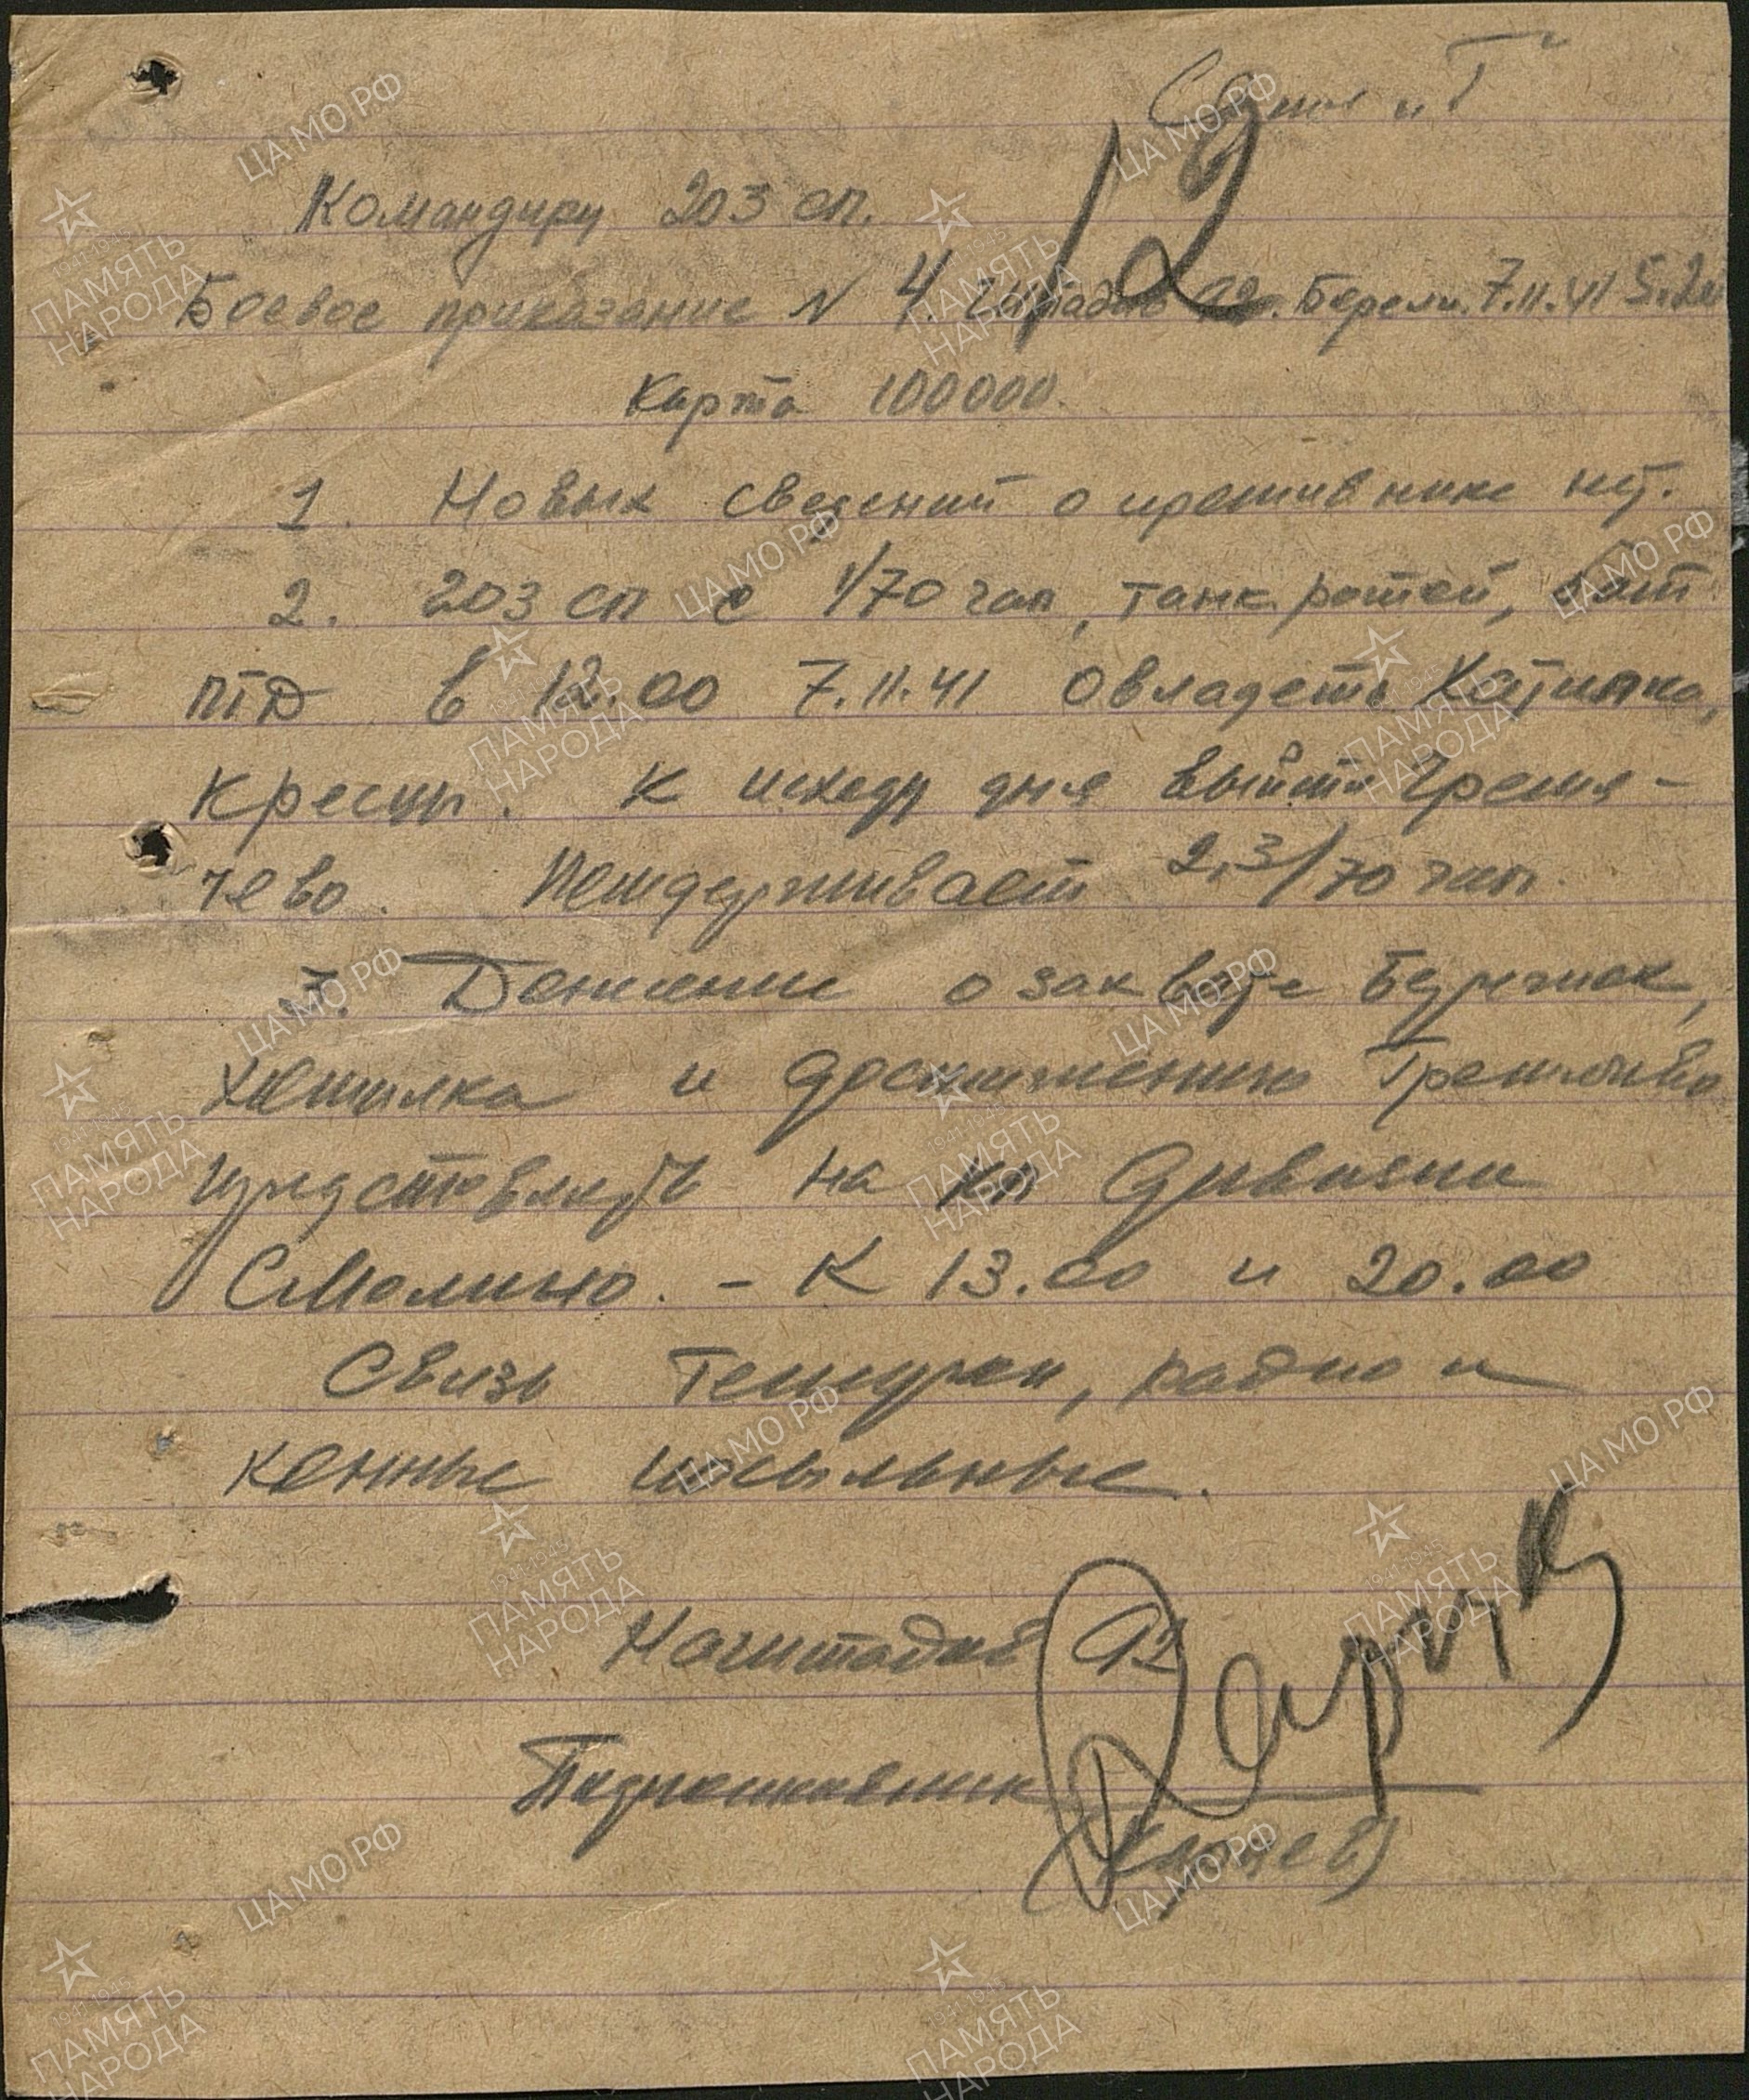 12
Командиру 203 сп.
Боевое приказание N 4. 92. 7.11.41 5.20
Карта 100000
1. Новых сведений о противнике нет.
2. 203 сп с 1/70 гап, танк. ротой, бат
ПТД в 12.00 7.11.41 овладеть Хотилка,
Кресцы. К исходу дня выйти Греме-
чево. Поддерживает 2,3/70 гап.
3. Донесение о захвате Бережек,
Хотилка и достижению
представлять на кп дивизии
Смолино. - К 13.00 и 20.00
Связь телефон, радио и
конные посыльные.
Наштадив 92
Подполковник
ЦА МО РФ
ПАМЯТЬ НАРОДА
1941-1945